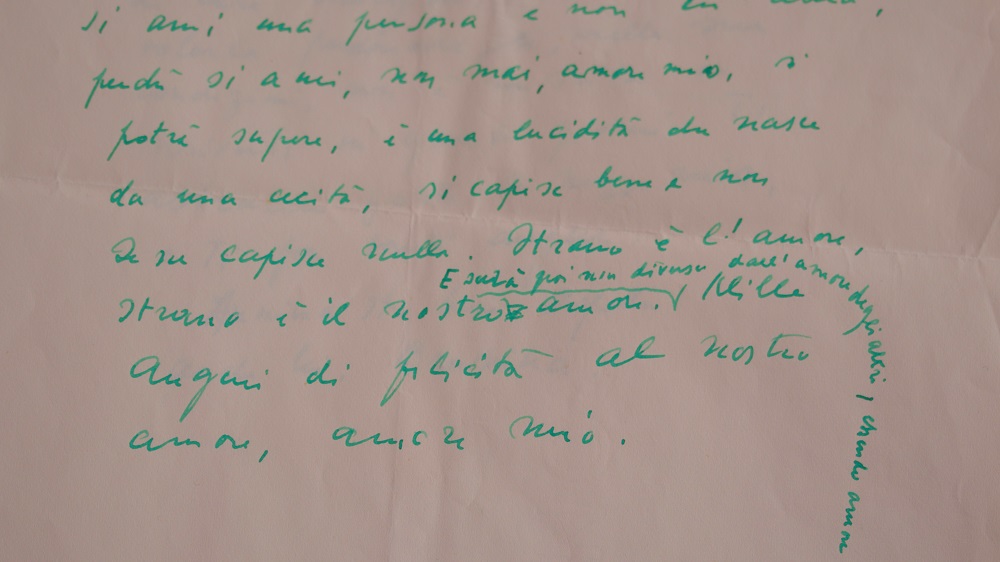 si ami una persona e non un'altra,
perché si ami, non mai, amore mio, si
potrà sapere, è una lucidità che nasce
da una cecità, si capisce bene e non
se ne capisce nulla. Strano è l'amore,
E sarà poi non diverso dall'amore degli altri, chiendo amore
strano è il nostro amore. Mille
Auguri di felicità al nostro
amore, amore mio.